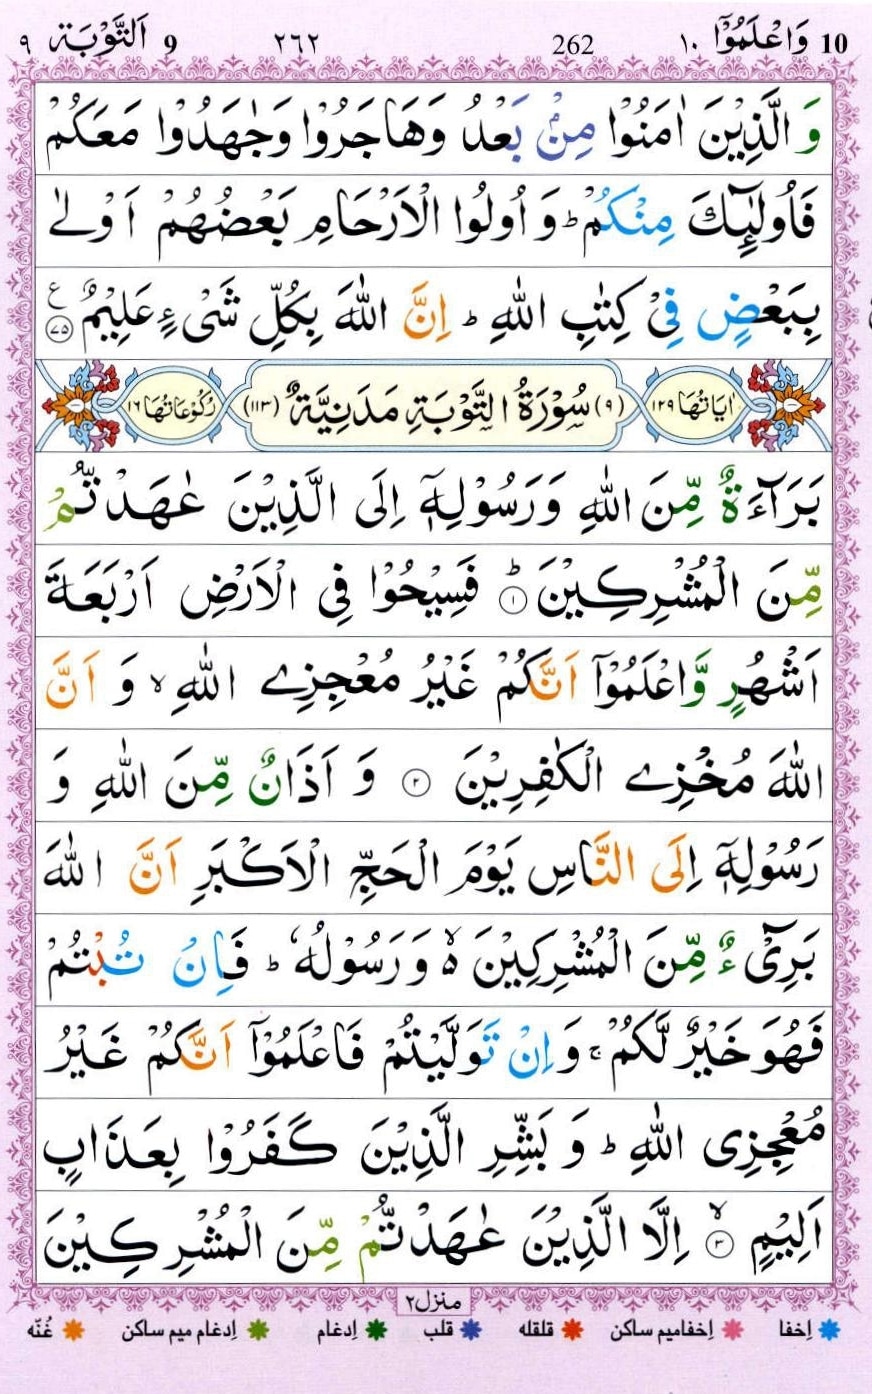 10 وَاعْلَمُوْٓا ١٠ 262 ٢٦٢ 9 اَلتَّوْبَة ٩
وَ الَّذِيْنَ اٰمَنُوْا مِنْۢ بَعْدُ وَهَاجَرُوْا وَجٰهَدُوْا مَعَكُمْ
فَاُولٰٓئِكَ مِنْكُمْ ؕ وَ اُولُوا الْاَرْحَامِ بَعْضُهُمْ اَوْلٰى
بِبَعْضٍ فِىْ كِتٰبِ اللّٰهِ ؕ اِنَّ اللّٰهَ بِكُلِّ شَىْءٍ عَلِيْمٌ ﴿۷۵﴾ ع
اٰيَاتُهَا ١٢٩ (٩) سُوْرَةُ التَّوْبَةِ مَدَنِيَّةٌ (١١٣) رُكُوْعَاتُهَا ١٦
بَرَآءَةٌ مِّنَ اللّٰهِ وَرَسُوْلِهٖۤ اِلَى الَّذِيْنَ عٰهَدْتُّمْ
مِّنَ الْمُشْرِكِيْنَ ؕ﴿۱﴾ فَسِيْحُوْا فِى الْاَرْضِ اَرْبَعَةَ
اَشْهُرٍ وَّاعْلَمُوْۤا اَنَّكُمْ غَيْرُ مُعْجِزِى اللّٰهِ ۙ وَ اَنَّ
اللّٰهَ مُخْزِى الْكٰفِرِيْنَ ﴿۲﴾ وَ اَذَانٌ مِّنَ اللّٰهِ وَ
رَسُوْلِهٖۤ اِلَى النَّاسِ يَوْمَ الْحَجِّ الْاَكْبَرِ اَنَّ اللّٰهَ
بَرِىْٓءٌ مِّنَ الْمُشْرِكِيْنَ ۙ۬ وَ رَسُوْلُهٗ ؕ فَاِنْ تُبْتُمْ
فَهُوَ خَيْرٌ لَّكُمْ ۚ وَاِنْ تَوَلَّيْتُمْ فَاعْلَمُوْۤا اَنَّكُمْ غَيْرُ
مُعْجِزِى اللّٰهِ ؕ وَ بَشِّرِ الَّذِيْنَ كَفَرُوْا بِعَذَابٍ
اَلِيْمٍ ۙ﴿۳﴾ اِلَّا الَّذِيْنَ عٰهَدْتُّمْ مِّنَ الْمُشْرِكِيْنَ
منزل٢
اِخفا اِخفامیم ساکن قلقله قلب اِدغام اِدغام میم ساکن غُنّه